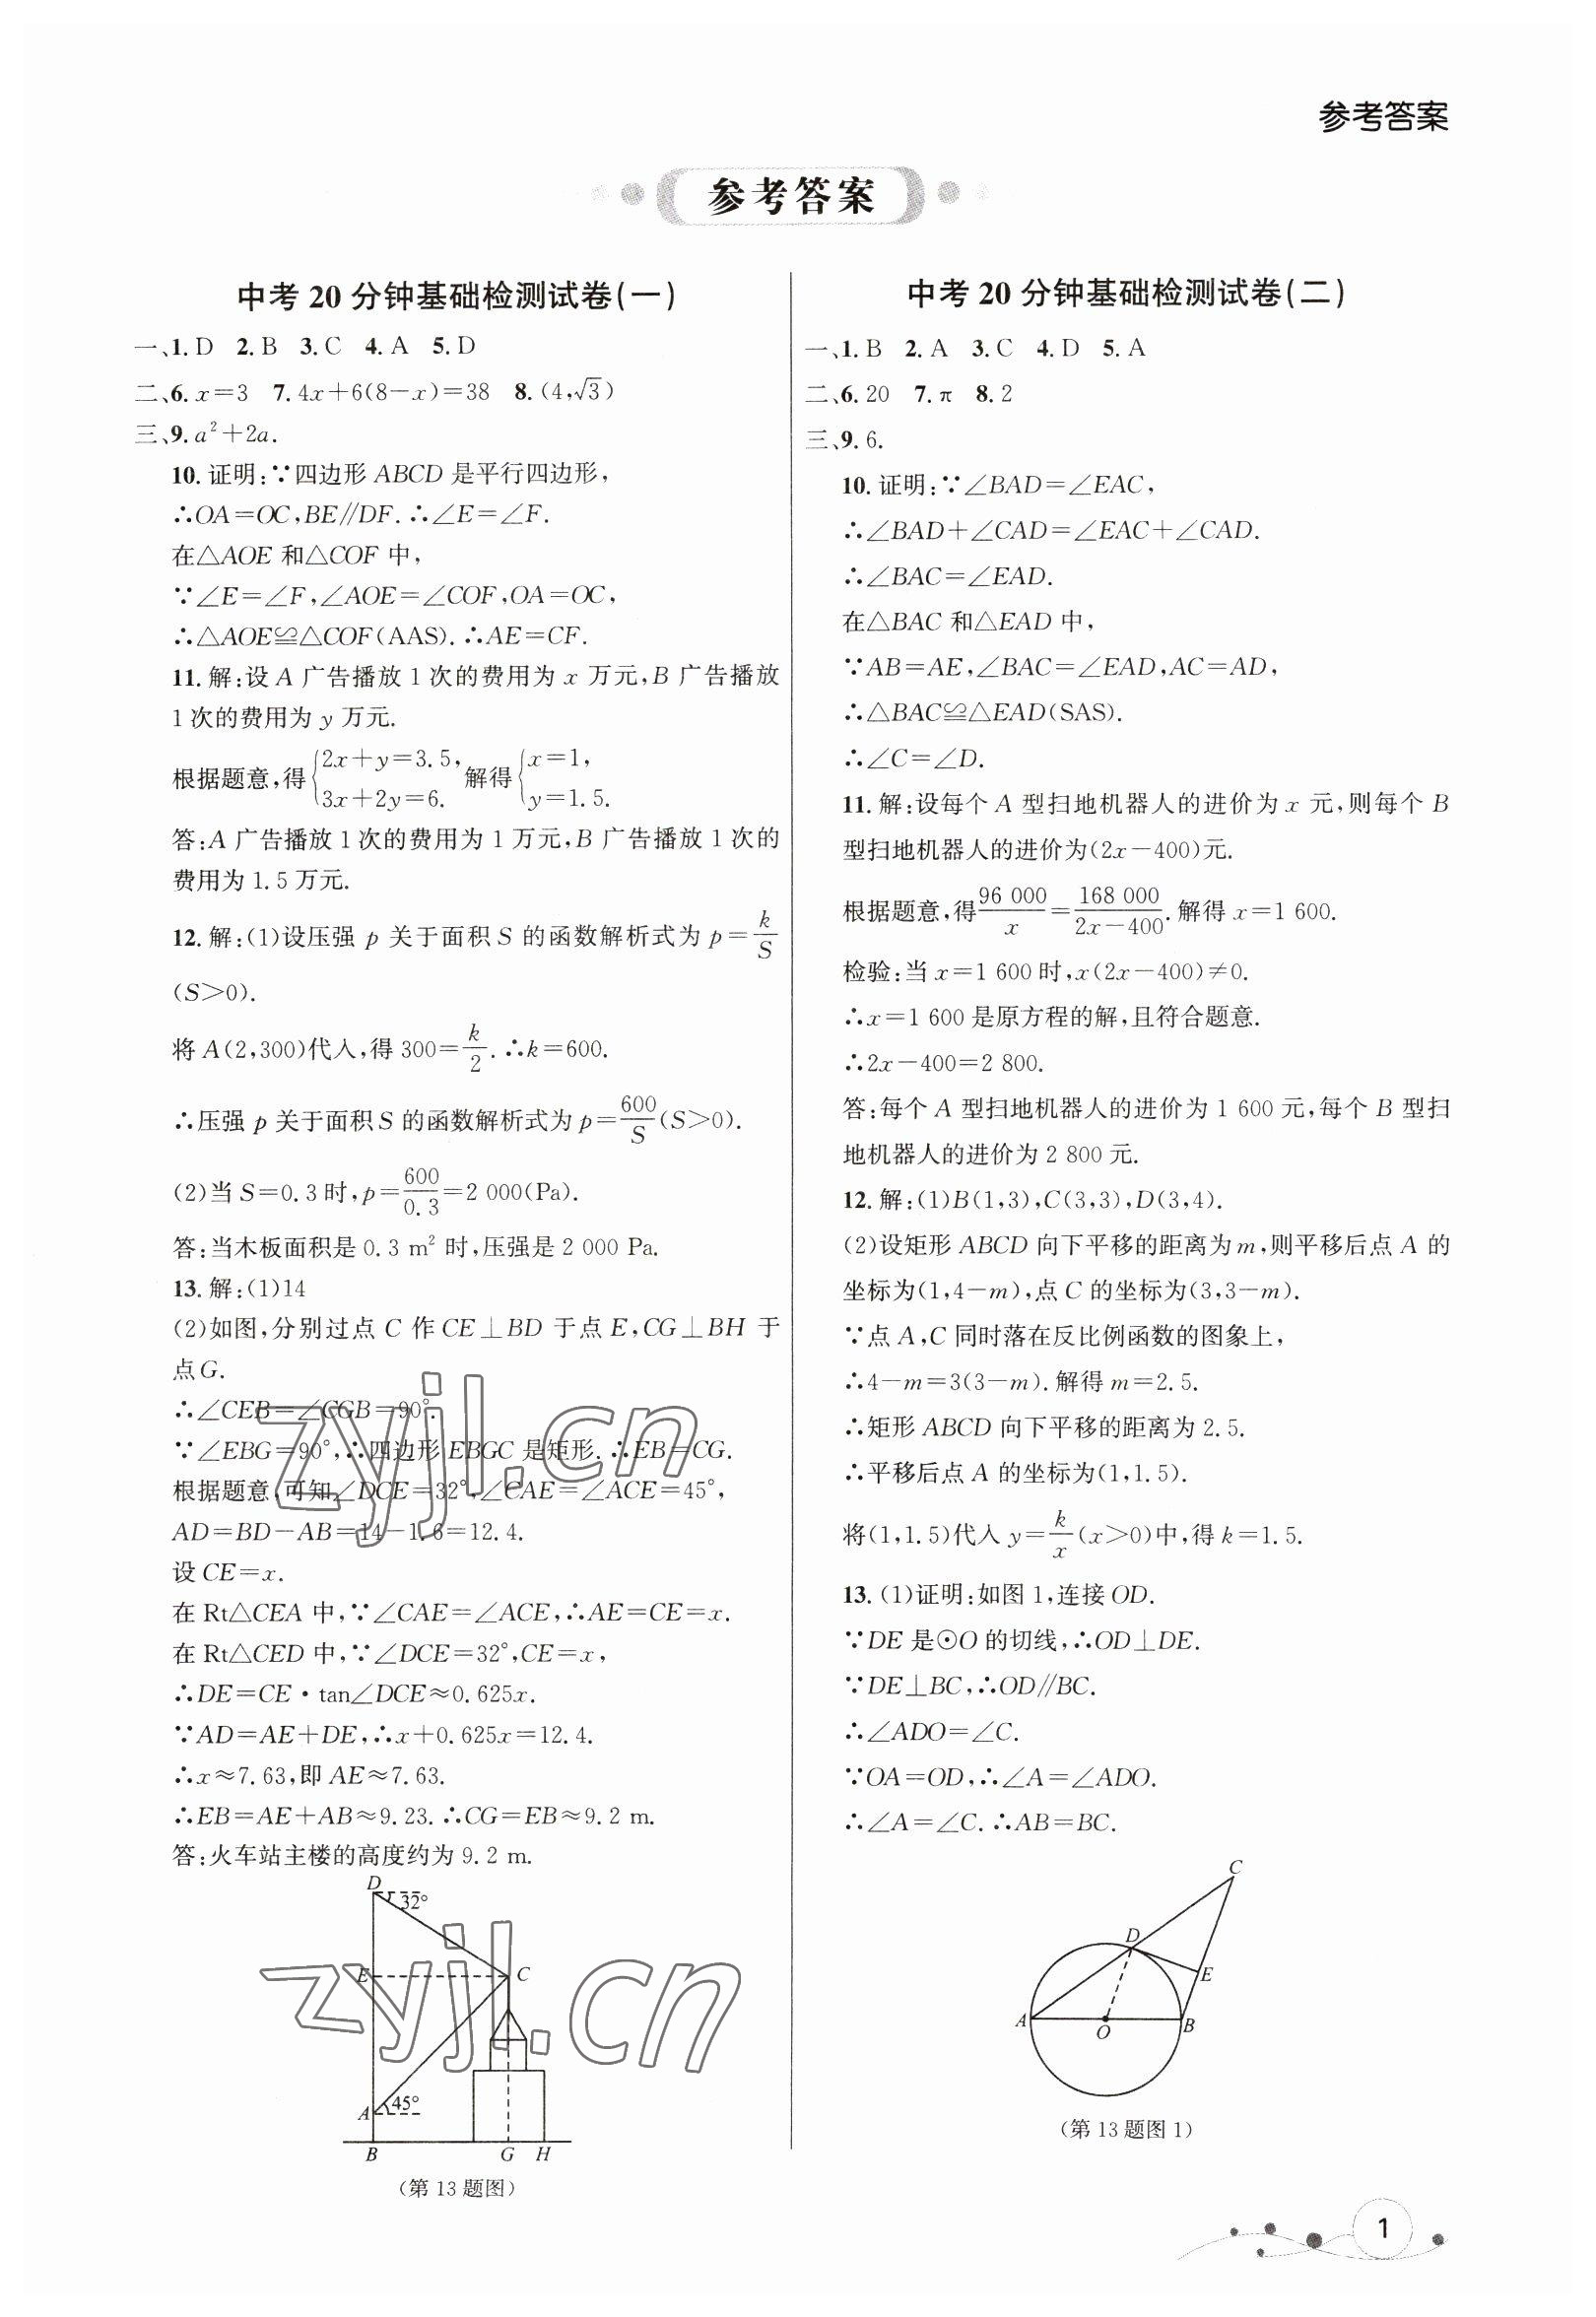 参考答案
参考答案
中考 20 分钟基础检测试卷(一)
一、1. D 2. B 3. C 4. A 5. D
二、6. x=3 7. 4x+6(8-x)=38 8. (4,√3)
三、9. a²+2a.
10. 证明:∵四边形 ABCD 是平行四边形,
∴OA=OC,BE∥DF. ∴∠E=∠F.
在△AOE 和△COF 中,
∵∠E=∠F,∠AOE=∠COF,OA=OC,
∴△AOE≌△COF(AAS). ∴AE=CF.
11. 解:设 A 广告播放 1 次的费用为 x 万元,B 广告播放
1 次的费用为 y 万元.
根据题意,得{2x+y=3.5, 3x+2y=6. 解得{x=1, y=1.5.
答:A 广告播放 1 次的费用为 1 万元,B 广告播放 1 次的
费用为 1.5 万元.
12. 解:(1)设压强 p 关于面积 S 的函数解析式为 p=k/S
(S>0).
将 A(2,300)代入,得 300=k/2. ∴k=600.
∴压强 p 关于面积 S 的函数解析式为 p=600/S(S>0).
(2)当 S=0.3 时,p=600/0.3=2 000(Pa).
答:当木板面积是 0.3 m² 时,压强是 2 000 Pa.
13. 解:(1)14
(2)如图,分别过点 C 作 CE⊥BD 于点 E,CG⊥BH 于
点 G.
∴∠CEB=∠CGB=90°.
∵∠EBG=90°,∴四边形 EBGC 是矩形. ∴EB=CG.
根据题意,可知∠DCE=32°,∠CAE=∠ACE=45°,
AD=BD-AB=14-1.6=12.4.
设 CE=x.
在 Rt△CEA 中,∵∠CAE=∠ACE,∴AE=CE=x.
在 Rt△CED 中,∵∠DCE=32°,CE=x,
∴DE=CE·tan∠DCE≈0.625x.
∵AD=AE+DE,∴x+0.625x=12.4.
∴x≈7.63,即 AE≈7.63.
∴EB=AE+AB≈9.23. ∴CG=EB≈9.2 m.
答:火车站主楼的高度约为 9.2 m.
D
32°
E
C
A
45°
B G H
(第 13 题图)
zyjl.cn
zyjl.cn
中考 20 分钟基础检测试卷(二)
一、1. B 2. A 3. C 4. D 5. A
二、6. 20 7. π 8. 2
三、9. 6.
10. 证明:∵∠BAD=∠EAC,
∴∠BAD+∠CAD=∠EAC+∠CAD.
∴∠BAC=∠EAD.
在△BAC 和△EAD 中,
∵AB=AE,∠BAC=∠EAD,AC=AD,
∴△BAC≌△EAD(SAS).
∴∠C=∠D.
11. 解:设每个 A 型扫地机器人的进价为 x 元,则每个 B
型扫地机器人的进价为(2x-400)元.
根据题意,得96 000/x=168 000/(2x-400). 解得 x=1 600.
检验:当 x=1 600 时,x(2x-400)≠0.
∴x=1 600 是原方程的解,且符合题意.
∴2x-400=2 800.
答:每个 A 型扫地机器人的进价为 1 600 元,每个 B 型扫
地机器人的进价为 2 800 元.
12. 解:(1)B(1,3),C(3,3),D(3,4).
(2)设矩形 ABCD 向下平移的距离为 m,则平移后点 A 的
坐标为(1,4-m),点 C 的坐标为(3,3-m).
∵点 A,C 同时落在反比例函数的图象上,
∴4-m=3(3-m). 解得 m=2.5.
∴矩形 ABCD 向下平移的距离为 2.5.
∴平移后点 A 的坐标为(1,1.5).
将(1,1.5)代入 y=k/x(x>0)中,得 k=1.5.
13. (1)证明:如图 1,连接 OD.
∵DE 是⊙O 的切线,∴OD⊥DE.
∵DE⊥BC,∴OD∥BC.
∴∠ADO=∠C.
∵OA=OD,∴∠A=∠ADO.
∴∠A=∠C. ∴AB=BC.
C
D
E
A
O
B
(第 13 题图 1)
1